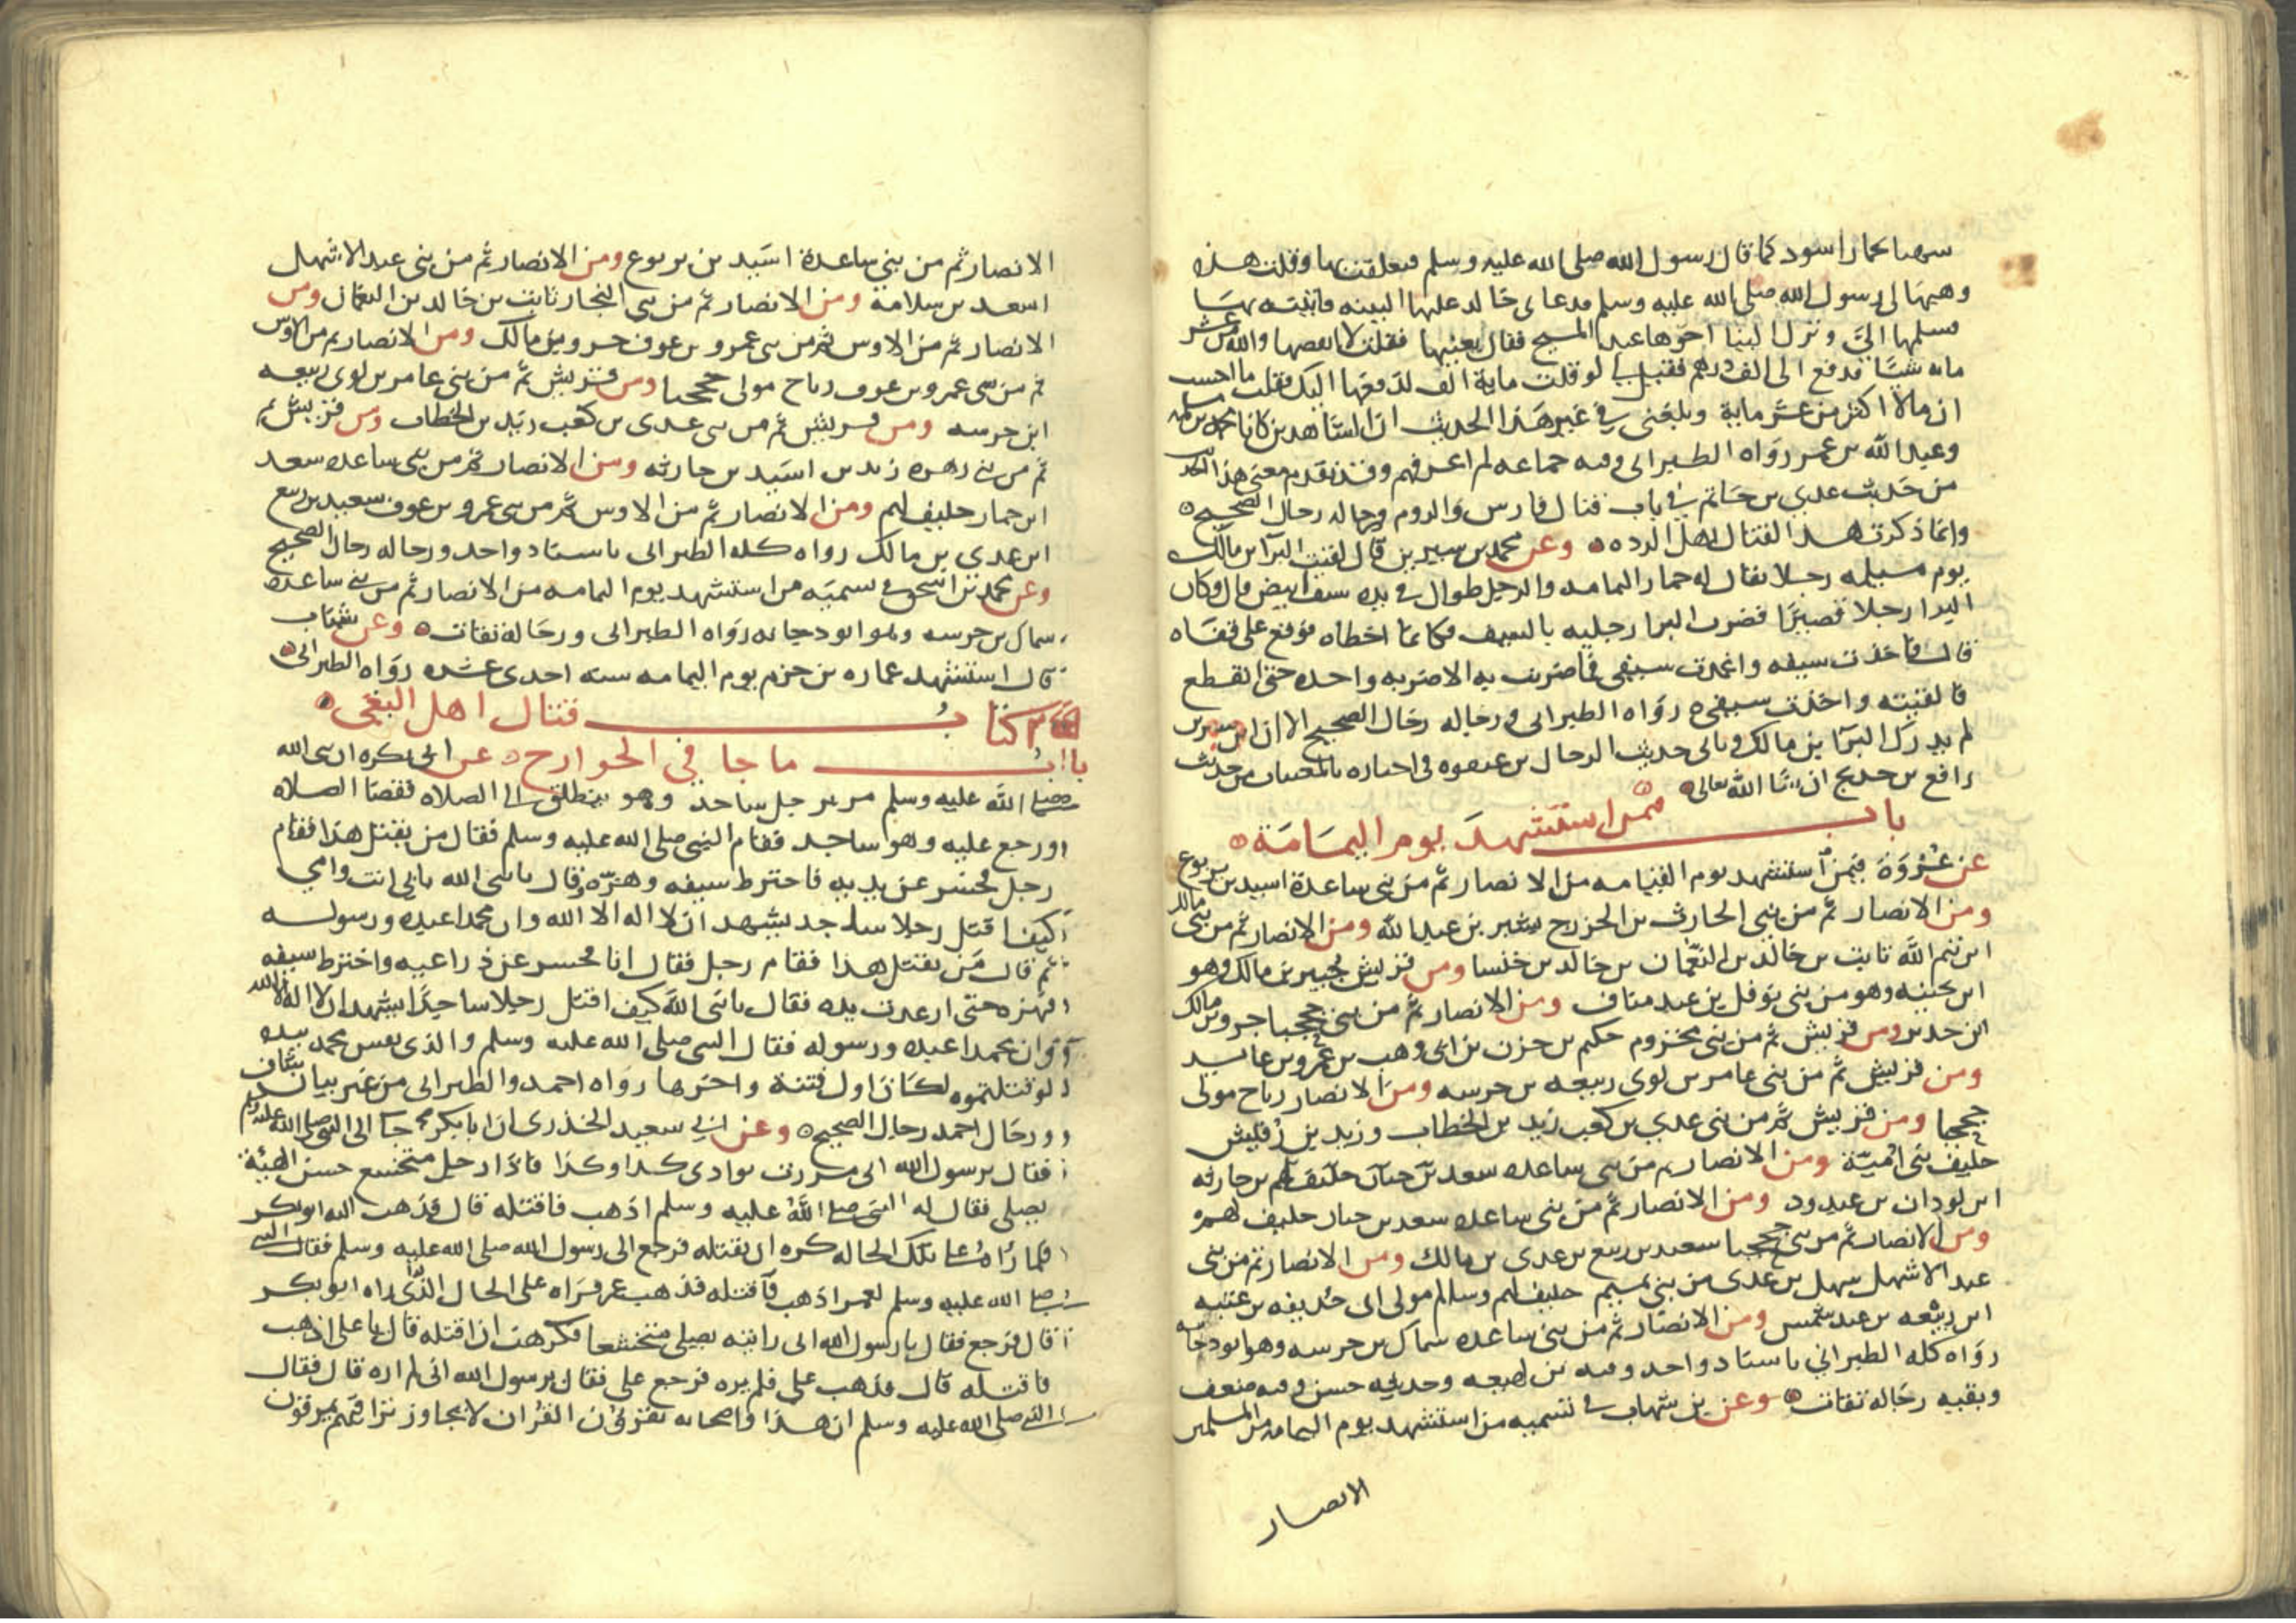 شهبا بخمار اسود كما قال رسول الله صلى الله عليه وسلم فتعلقت بها وقلت هذه
وهبها لى رسول الله صلى الله عليه وسلم فدعا بى خالد عليها البينه فاتيته بها
فسلمها الىّ ونزل الينا اخوها عبد المسيح فقال بعنيها فقلت لا انقصها والله من عشر
مايه شيئا فدفع الى الف درهم فقيل لى لو قلت مايه الف لدفعها اليك فقلت ما احسب
ان مالا اكثر من عشر مايه وبلغنى فى غير هذا الحديث ان الشاهدين كانا محمد بن مسلمه
وعبد الله بن عمر رواه الطبرانى وفيه جماعه لم اعرفهم وقد تقدم معنى هذا
من حديث عدى بن حاتم فى باب قتال فارس والروم ورجاله رجال الصحيح
وانما ذكرت هذا لقتال اهل الرده وعن محمد بن سيرين قال لقيت البرا بن مالك
يوم مسيلمه رجلا يقال له حمار اليمامه والرجل طوال فى يده سيف ابيض قال وكان
البرا رجلا قصيرا فضرب البرا رجليه بالسيف فكانما اخطاه فوقع على قفاه
قال فاخذت سيفه واغمدت سيفى فما ضربت به الا ضربه واحده حتى انقطع
فالقيته واخذت سيفى رواه الطبرانى ورجاله رجال الصحيح الا ان ابن سيرين
لم يدرك البرا بن مالك وياتى حديث الرحال بن عنفوه فى اخباره بالمغيبات من حديث
رافع بن خديج ان شا الله تعالى
باب فيمن استشهد يوم اليمامة
عن عروة فيمن استشهد يوم اليمامه من الانصار ثم من بنى ساعدة اسيد بن يربوع
ومن الانصار ثم من بنى الحارث بن الخزرج بشير بن عبد الله ومن الانصار ثم من بنى مالك
ابن تيم الله ثابت بن خالد بن النعمان بن خالد بن خنسا ومن قريش جبير بن مالك وهو
ابن بحينه وهو من بنى نوفل بن عبد مناف ومن الانصار ثم من بنى جحجبا جرو بن مالك
ابن حدير ومن قريش ثم من بنى مخزوم حكيم بن حزن بن ابى وهب بن عمرو بن عايد
ومن قريش ثم من بنى عامر بن لوى ربيعه بن خرشه ومن الانصار رباح مولى
جحجبا ومن قريش ثم من بنى عدى بن كعب زيد بن الخطاب وزيد بن رقيش
حليف بنى امية ومن الانصار ثم من بنى ساعده سعد بن حبان حليف لهم بن حارثه
ابن لوذان بن عبد ود ومن الانصار ثم من بنى ساعده سعد بن حبان حليف لهم
ومن الانصار ثم من بنى جحجبا سعيد بن ربيع بن عدى بن مالك ومن الانصار ثم من بنى
عبد الاشهل سهل بن عدى من بنى تميم حليف لهم وسالم مولى ابى حذيفه بن عتبه
ابن ربيعه بن عبد شمس ومن الانصار ثم من بنى ساعده سماك بن خرشه وهو ابو دجانه
رواه كله الطبرانى باسناد واحد وفيه بن لهيعه وحديثه حسن وفيه ضعف
وبقيه رجاله ثقات وعن بن شهاب فى تسميه من استشهد يوم اليمامه من المسلمين
الانصار
الانصار ثم من بنى ساعدة اسيد بن يربوع ومن الانصار ثم من بنى عبد الاشهل
اسعد بن سلامة ومن الانصار ثم من بنى النجار ثابت بن خالد بن النعمان ومن
الانصار ثم من الاوس ثم من بنى عمرو بن عوف جرو بن مالك ومن الانصار ثم من الاوس
ثم من بنى عمرو بن عوف رباح مولى جحجبا ومن قريش ثم من بنى عامر بن لوى ربيعه
ابن خرشه ومن قريش ثم من بنى عدى بن كعب زيد بن الخطاب ومن قريش ثم
ثم من بنى زهره زيد بن اسيد بن حارثه ومن الانصار ثم من بنى ساعده سعد
ابن حمار حليف لهم ومن الانصار ثم من الاوس ثم من بنى عمرو بن عوف سعيد بن ربيع
ابن عدى بن مالك رواه كله الطبرانى باسناد واحد ورجاله رجال الصحيح
وعن محمد بن اسحق فى تسميه من استشهد يوم اليمامه من الانصار ثم من بنى ساعده
سماك بن خرشه وهو ابو دجانه رواه الطبرانى ورجاله ثقات وعن شهاب
قال استشهد عماره بن حزم يوم اليمامه سنه احدى عشره رواه الطبرانى
كتاب قتال اهل البغى
باب ما جا فى الخوارج عن ابى بكره ان نبى الله
صلى الله عليه وسلم مر برجل ساجد وهو ينطلق الى الصلاه فقضا الصلاه
ورجع عليه وهو ساجد فقام النبى صلى الله عليه وسلم فقال من يقتل هذا فقام
رجل فحسر عن يديه فاخترط سيفه وهزه وقال يا نبى الله بابى انت وامى
كيف اقتل رجلا ساجد يشهد ان لا اله الا الله وان محمدا عبده ورسوله
ثم قال من يقتل هذا فقام رجل فقال انا فحسر عن ذراعيه واخترط سيفه
فهزه حتى ارعدت يده فقال يا نبى الله كيف اقتل رجلا ساجدا يشهد ان لا اله الا الله
وان محمدا عبده ورسوله فقال النبى صلى الله عليه وسلم والذى نفس محمد بيده
لو قتلتموه لكان اول فتنة واخرها رواه احمد والطبرانى من غير بيان شاف
ورجال احمد رجال الصحيح وعن ابى سعيد الخدرى ان ابا بكر جا الى النبى صلى الله عليه وسلم
فقال يرسول الله انى مررت بوادى كذا وكذا فاذا رجل متخشع حسن الهيئة
يصلى فقال له النبى صلى الله عليه وسلم اذهب فاقتله قال فذهب اليه ابو بكر
فلما راه على تلك الحاله كره ان يقتله فرجع الى رسول الله صلى الله عليه وسلم فقال النبى
صلى الله عليه وسلم لعمر اذهب فاقتله فذهب عمر فراه على الحال الذى راه ابو بكر
قال فرجع فقال يا رسول الله انى رايته يصلى متخشعا فكرهت ان اقتله قال يا على اذهب
فاقتله قال فذهب على فلم يره فرجع على فقال يرسول الله انى لم اره قال فقال
النبى صلى الله عليه وسلم ان هذا واصحابه يقرؤن القران لا يجاوز تراقيهم يمرقون